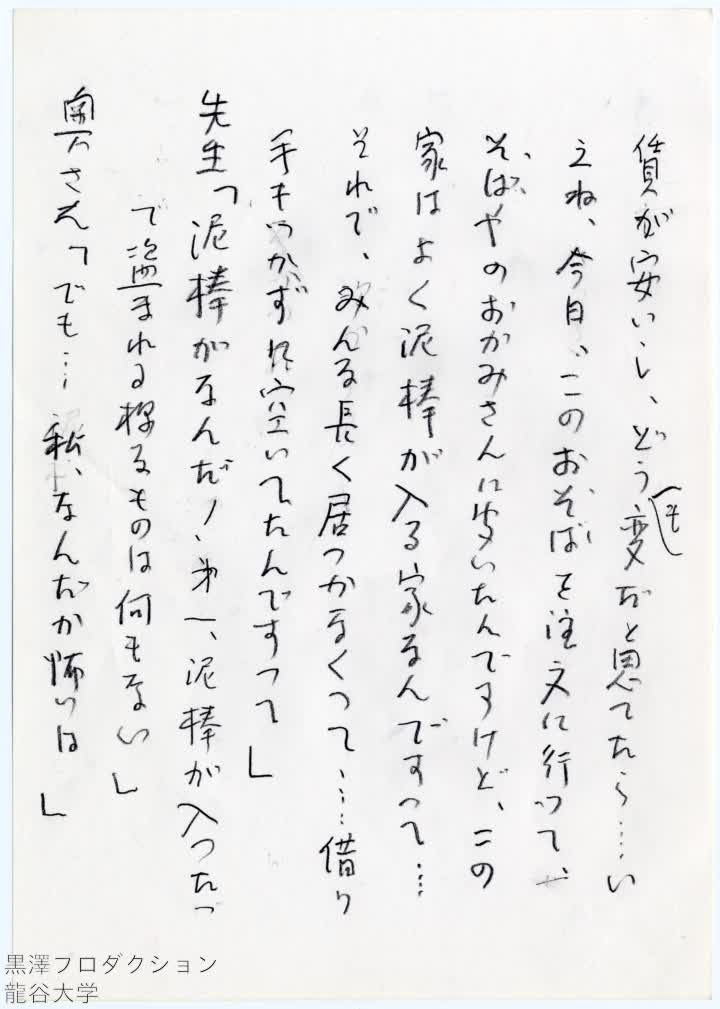 賃が安いし、どうも変だと思てたら……い
えね、今日、このおそばを注文に行って、
そばやのおかみさんに聞いたんですけど、この
家はよく泥棒が入る家なんですって……
それで、みんな長く居つかなくって……借り
手もつかずに空いてたんですって」
先生「泥棒がなんだ!第一、泥棒が入ったっ
て盗まれる様なものは何もない」
奥さん「でも…私、なんだか怖いは」
黒澤プロダクション
龍谷大学